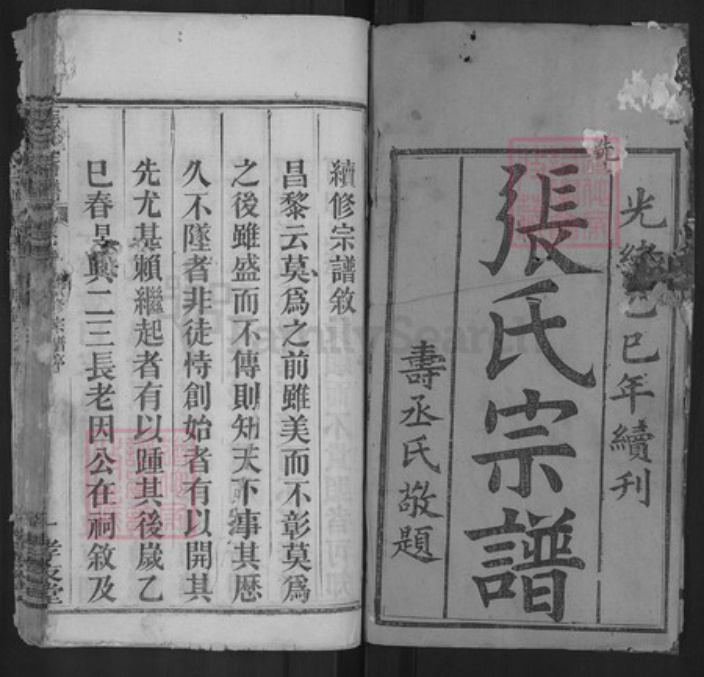 光緒乙巳年續刊
張氏宗譜
壽丞氏敬題
續修宗譜敘
昌黎云莫爲之前雖美而不彰莫爲
之後雖盛而不傳則知天下事其歷
久不墜者非徒恃創始者有以開其
先尤甚賴繼起者有以踵其後歲乙
巳春昆與二三長老因公在祠敘及
FamilySearch